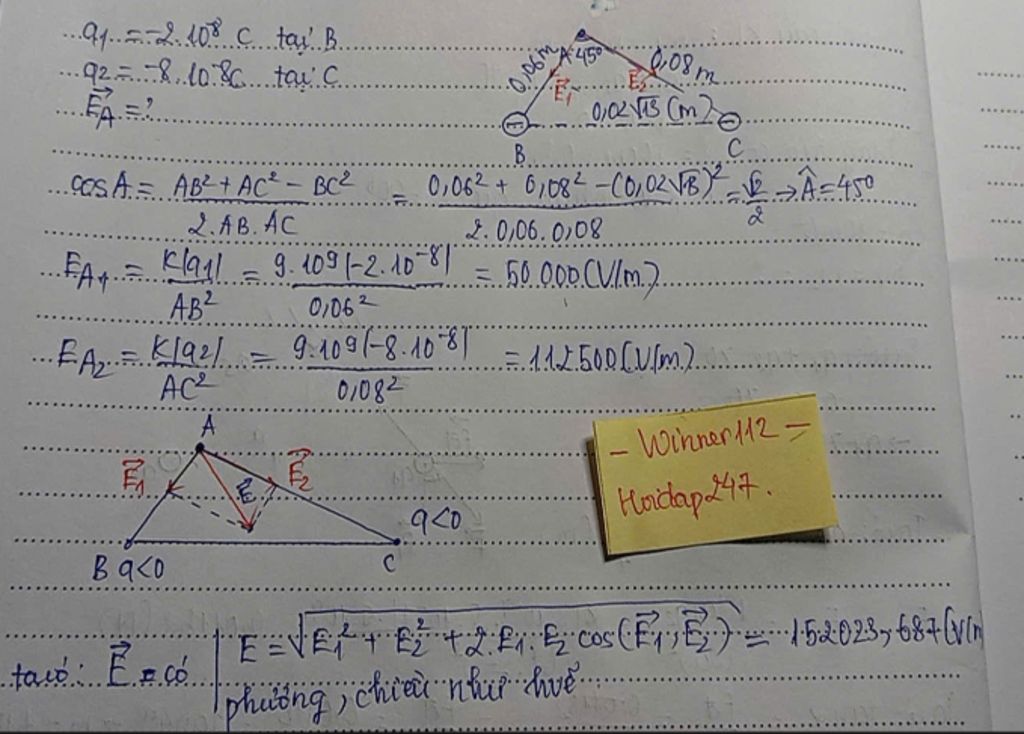 q1 = -2.10⁻⁸ C tại B
q2 = -8.10⁻⁸C tại C
E⃗A = ?
A 45°
0,06m
0,08m
E⃗1
E⃗2
0,02√13 (m)
B
C
cosA = (AB² + AC² - BC²)/(2.AB.AC) = (0,06² + 0,08² - (0,02√13)²)/(2.0,06.0,08) = √2/2 → Â = 45°
EA1 = K|q1|/AB² = 9.10⁹|-2.10⁻⁸|/0,06² = 50.000(V/m)
EA2 = K|q2|/AC² = 9.10⁹|-8.10⁻⁸|/0,08² = 112.500(V/m)
A
E⃗1
E⃗
E⃗2
B q<0
C
q<0
- Winner112 -
Hoidap247.
ta có: E⃗ = có | E = √(E1² + E2² + 2.E1.E2 cos(E⃗1; E⃗2)) = 152023,687(V/m
phương, chiều như hvẽ